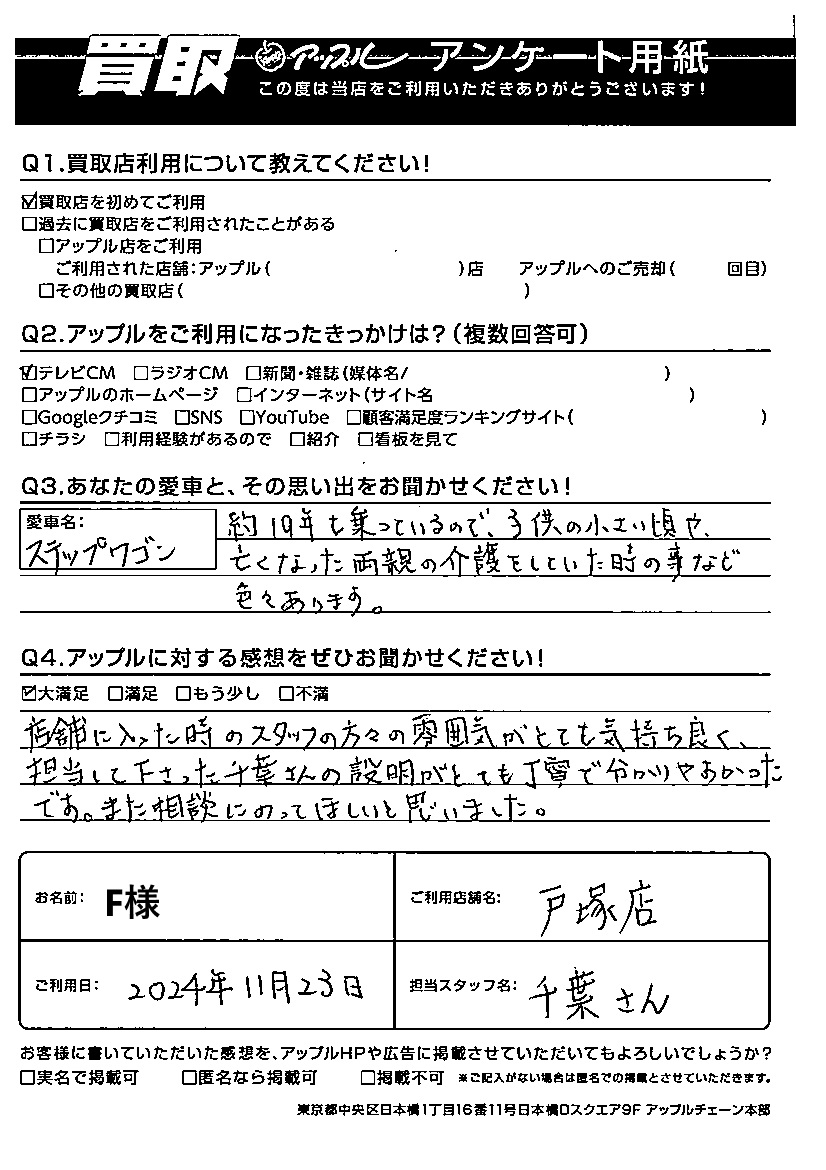 買取 アップル アンケート用紙
この度は当店をご利用いただきありがとうございます!
Q1.買取店利用について教えてください!
☑買取店を初めてご利用
□過去に買取店をご利用されたことがある
□アップル店をご利用
ご利用された店舗:アップル( )店 アップルへのご売却( 回目)
□その他の買取店( )
Q2.アップルをご利用になったきっかけは?(複数回答可)
☑テレビCM □ラジオCM □新聞・雑誌(媒体名/ )
□アップルのホームページ □インターネット(サイト名 )
□Googleクチコミ □SNS □YouTube □顧客満足度ランキングサイト( )
□チラシ □利用経験があるので □紹介 □看板を見て
Q3.あなたの愛車と、その思い出をお聞かせください!
愛車名:
ステップワゴン
約19年も乗っているので、子供の小さい頃や、
亡くなった両親の介護をしていた時の事など
色々あります。
Q4.アップルに対する感想をぜひお聞かせください!
☑大満足 □満足 □もう少し □不満
店舗に入った時のスタッフの方々の雰囲気がとても気持ち良く、
担当して下さった千葉さんの説明がとても丁寧で分かりやすかった
です。また相談にのってほしいと思いました。
お名前: F様 ご利用店舗名: 戸塚店
ご利用日: 2024年11月23日 担当スタッフ名: 千葉さん
お客様に書いていただいた感想を、アップルHPや広告に掲載させていただいてもよろしいでしょうか?
□実名で掲載可 □匿名なら掲載可 □掲載不可 ※ご記入がない場合は匿名での掲載とさせていただきます。
東京都中央区日本橋1丁目16番11号日本橋Dスクエア9F アップルチェーン本部